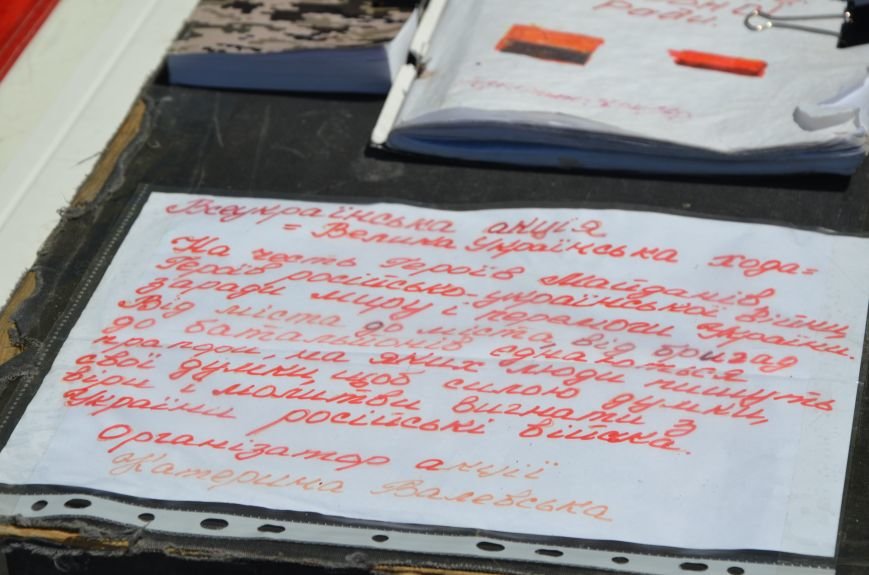 ради.
Всеукраїнська акція
= Велика Українська Хода=
На честь Героїв Майданів
Героїв російсько-української війни,
заради миру і перемоги України.
Від міста до міста, від бригад
до батальйонів єднаються
прапори, на яких люди пишуть
свої думки, щоб силою думки,
віри і молитви вигнати з
України російські війська.
Організатор акції
Катерина Валевська